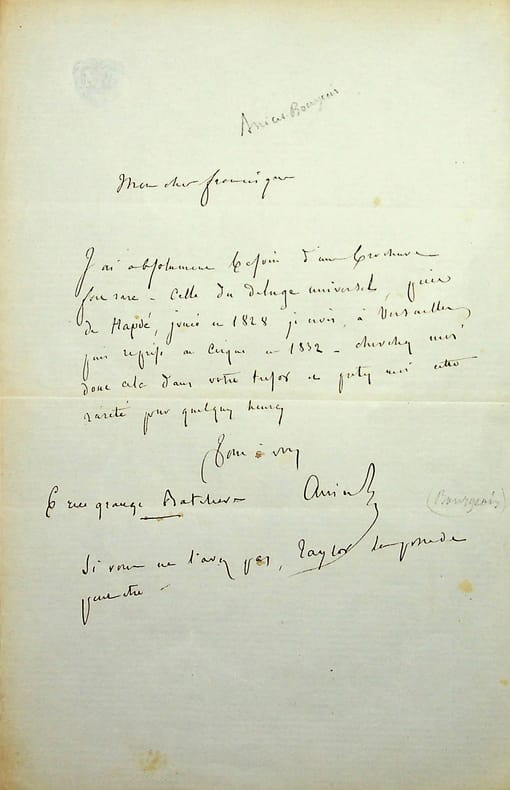 Anicet Bourgeois
Mon cher Francisque
J'ai absolument besoin d'une brochure
fort rare - Celle du deluge universel, pièce
de Hapdé, jouée en 1828 je crois, à Versailles
puis reprise au Cirque en 1832 - cherchez moi
donc cela dans votre trésor et pretez moi cette
rareté pour quelques heures
Tout à vous
6 rue grange Batelière Anicet B
(Bourgeois)
Si vous ne l'avez pas, Taylor la possede
peut etre -